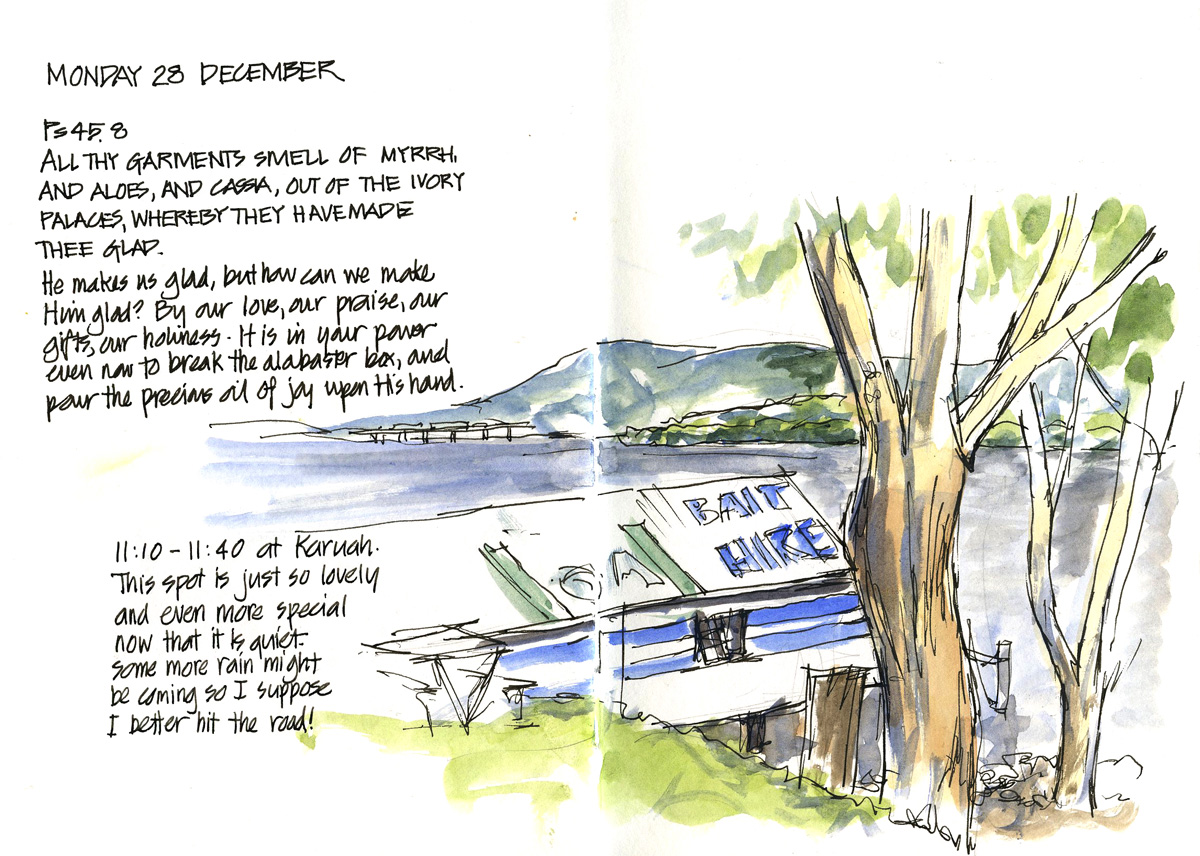 MONDAY 28 DECEMBER
Ps 45. 8
ALL THY GARMENTS SMELL OF MYRRH,
AND ALOES, AND CASSIA, OUT OF THE IVORY
PALACES, WHEREBY THEY HAVE MADE
THEE GLAD.
He makes us glad, but how can we make
Him glad? By our love, our praise, our
gifts, our holiness. It is in your power
even now to break the alabaster box, and
pour the precious oil of joy upon His hand.
11:10 - 11:40 at Karuah.
This spot is just so lovely
and even more special
now that it is quiet.
some more rain might
be coming so I suppose
I better hit the road!
BAIT
HIRE